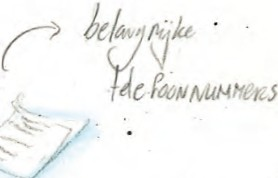 belangrijke
telefoonnummers